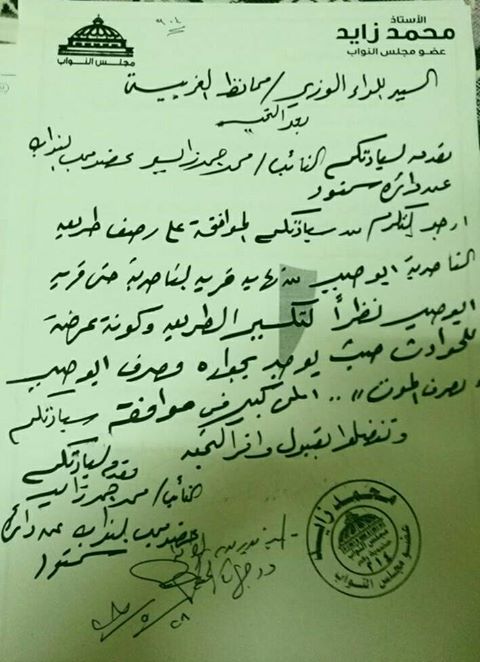 الأستاذ
محمد زايد
عضو مجلس النواب
مجلس النواب
السيد اللواء الوزير / محافظ الغربية
بعد التحية
مقدمه لسيادتكم النائب / محمد زايد عضو مجلس النواب
عن دائرة سمنود
ارجو التكرم من سيادتكم الموافقة على رصف طريق
الناصرية ابوصير من نهاية قرية الناصرية حتى قرية
ابوصير نظراً لتكسير الطريق وكونة عرضة
للحوادث حيث يوجد بجواره مصرف ابوصير
"مصرف الموت" .. املى كبير فى موافقة سيادتكم
وتفضلوا بقبول وافر التحيه
مقدم لسيادتكم
النائب / محمد زايد
عضو مجلس النواب عن دائرة
سمنود
محمد زايد
مجلس النواب
عضو مجلس النواب